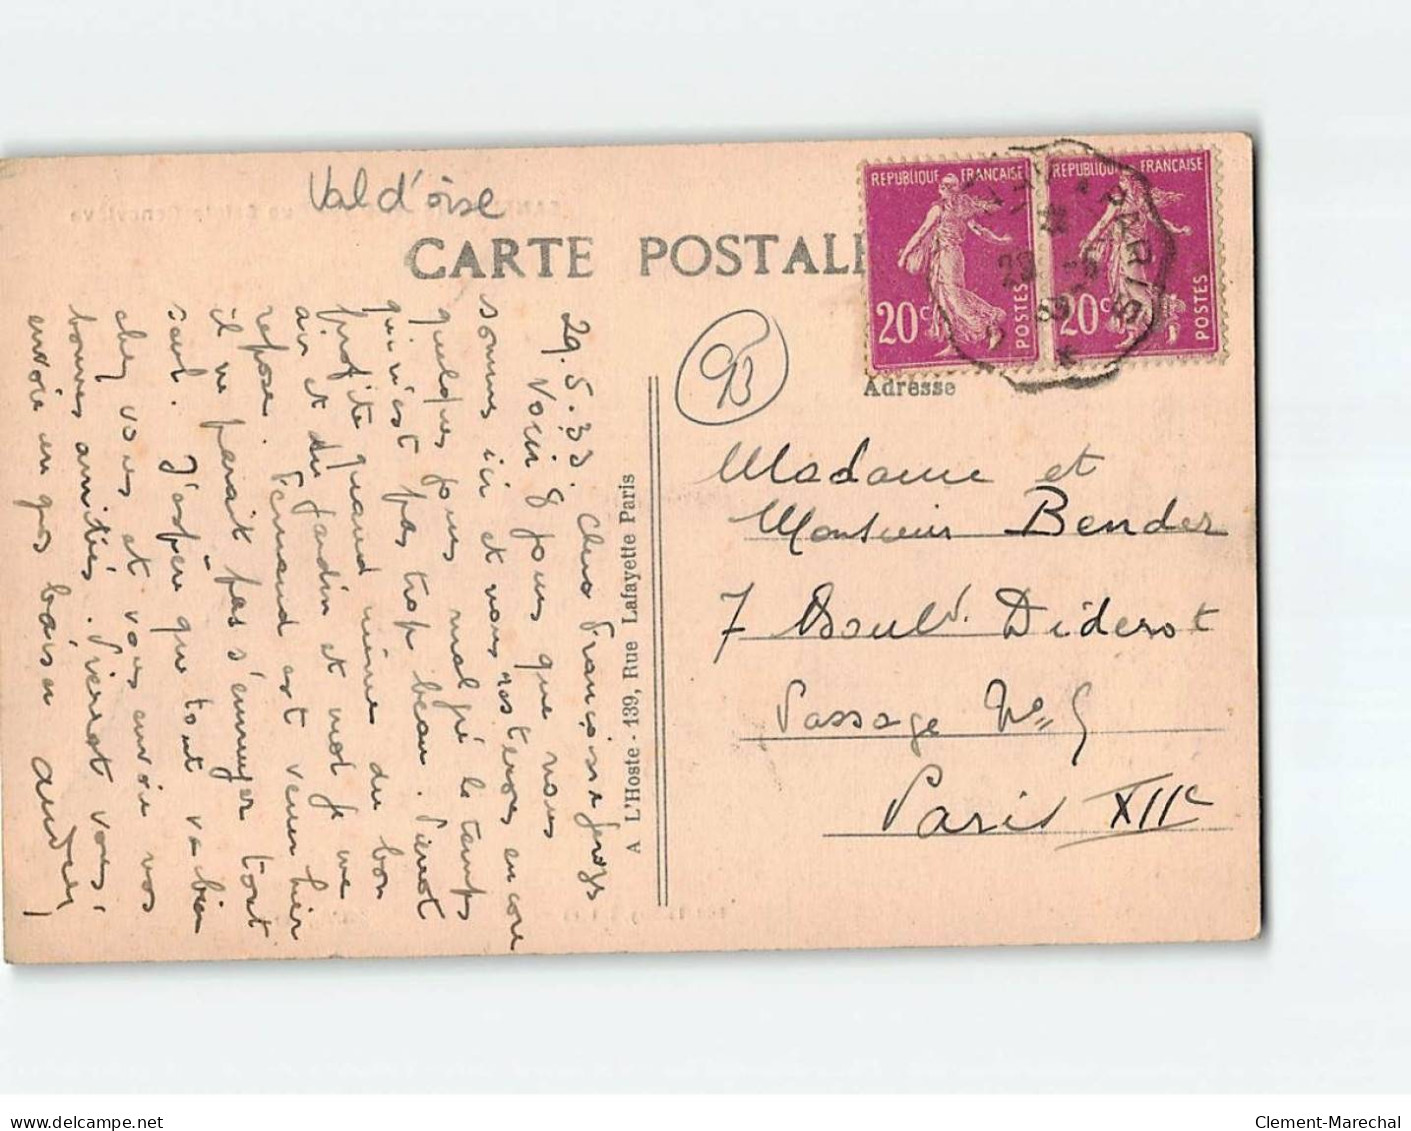 Val d'oise
CARTE POSTALE
REPUBLIQUE FRANÇAISE
20c
POSTES
REPUBLIQUE FRANÇAISE
20c
POSTES
PARIS
95
Adresse
Madame et
Monsieur Bender
7 Boulv. Diderot
Passage No 5
Paris XIIe
A L'Hoste - 139, Rue Lafayette Paris
29.5.33 Chers
Voici 8 jours que nous
sommes ici et nous resterons encore
quelques jours malgré le temps
qui n'est pas trop beau. Pierrot
profite quand même du bon
air et du jardin et moi je me
repose. Fernand est venu hier
il ne parait pas s'ennuyer tout
seul. J'espère que tout va bien
chez vous et vous envoie nos
bonnes amitiés. Pierrot vous
envoie un gros baiser Andrée
www.delcampe.net
Clement-Marechal